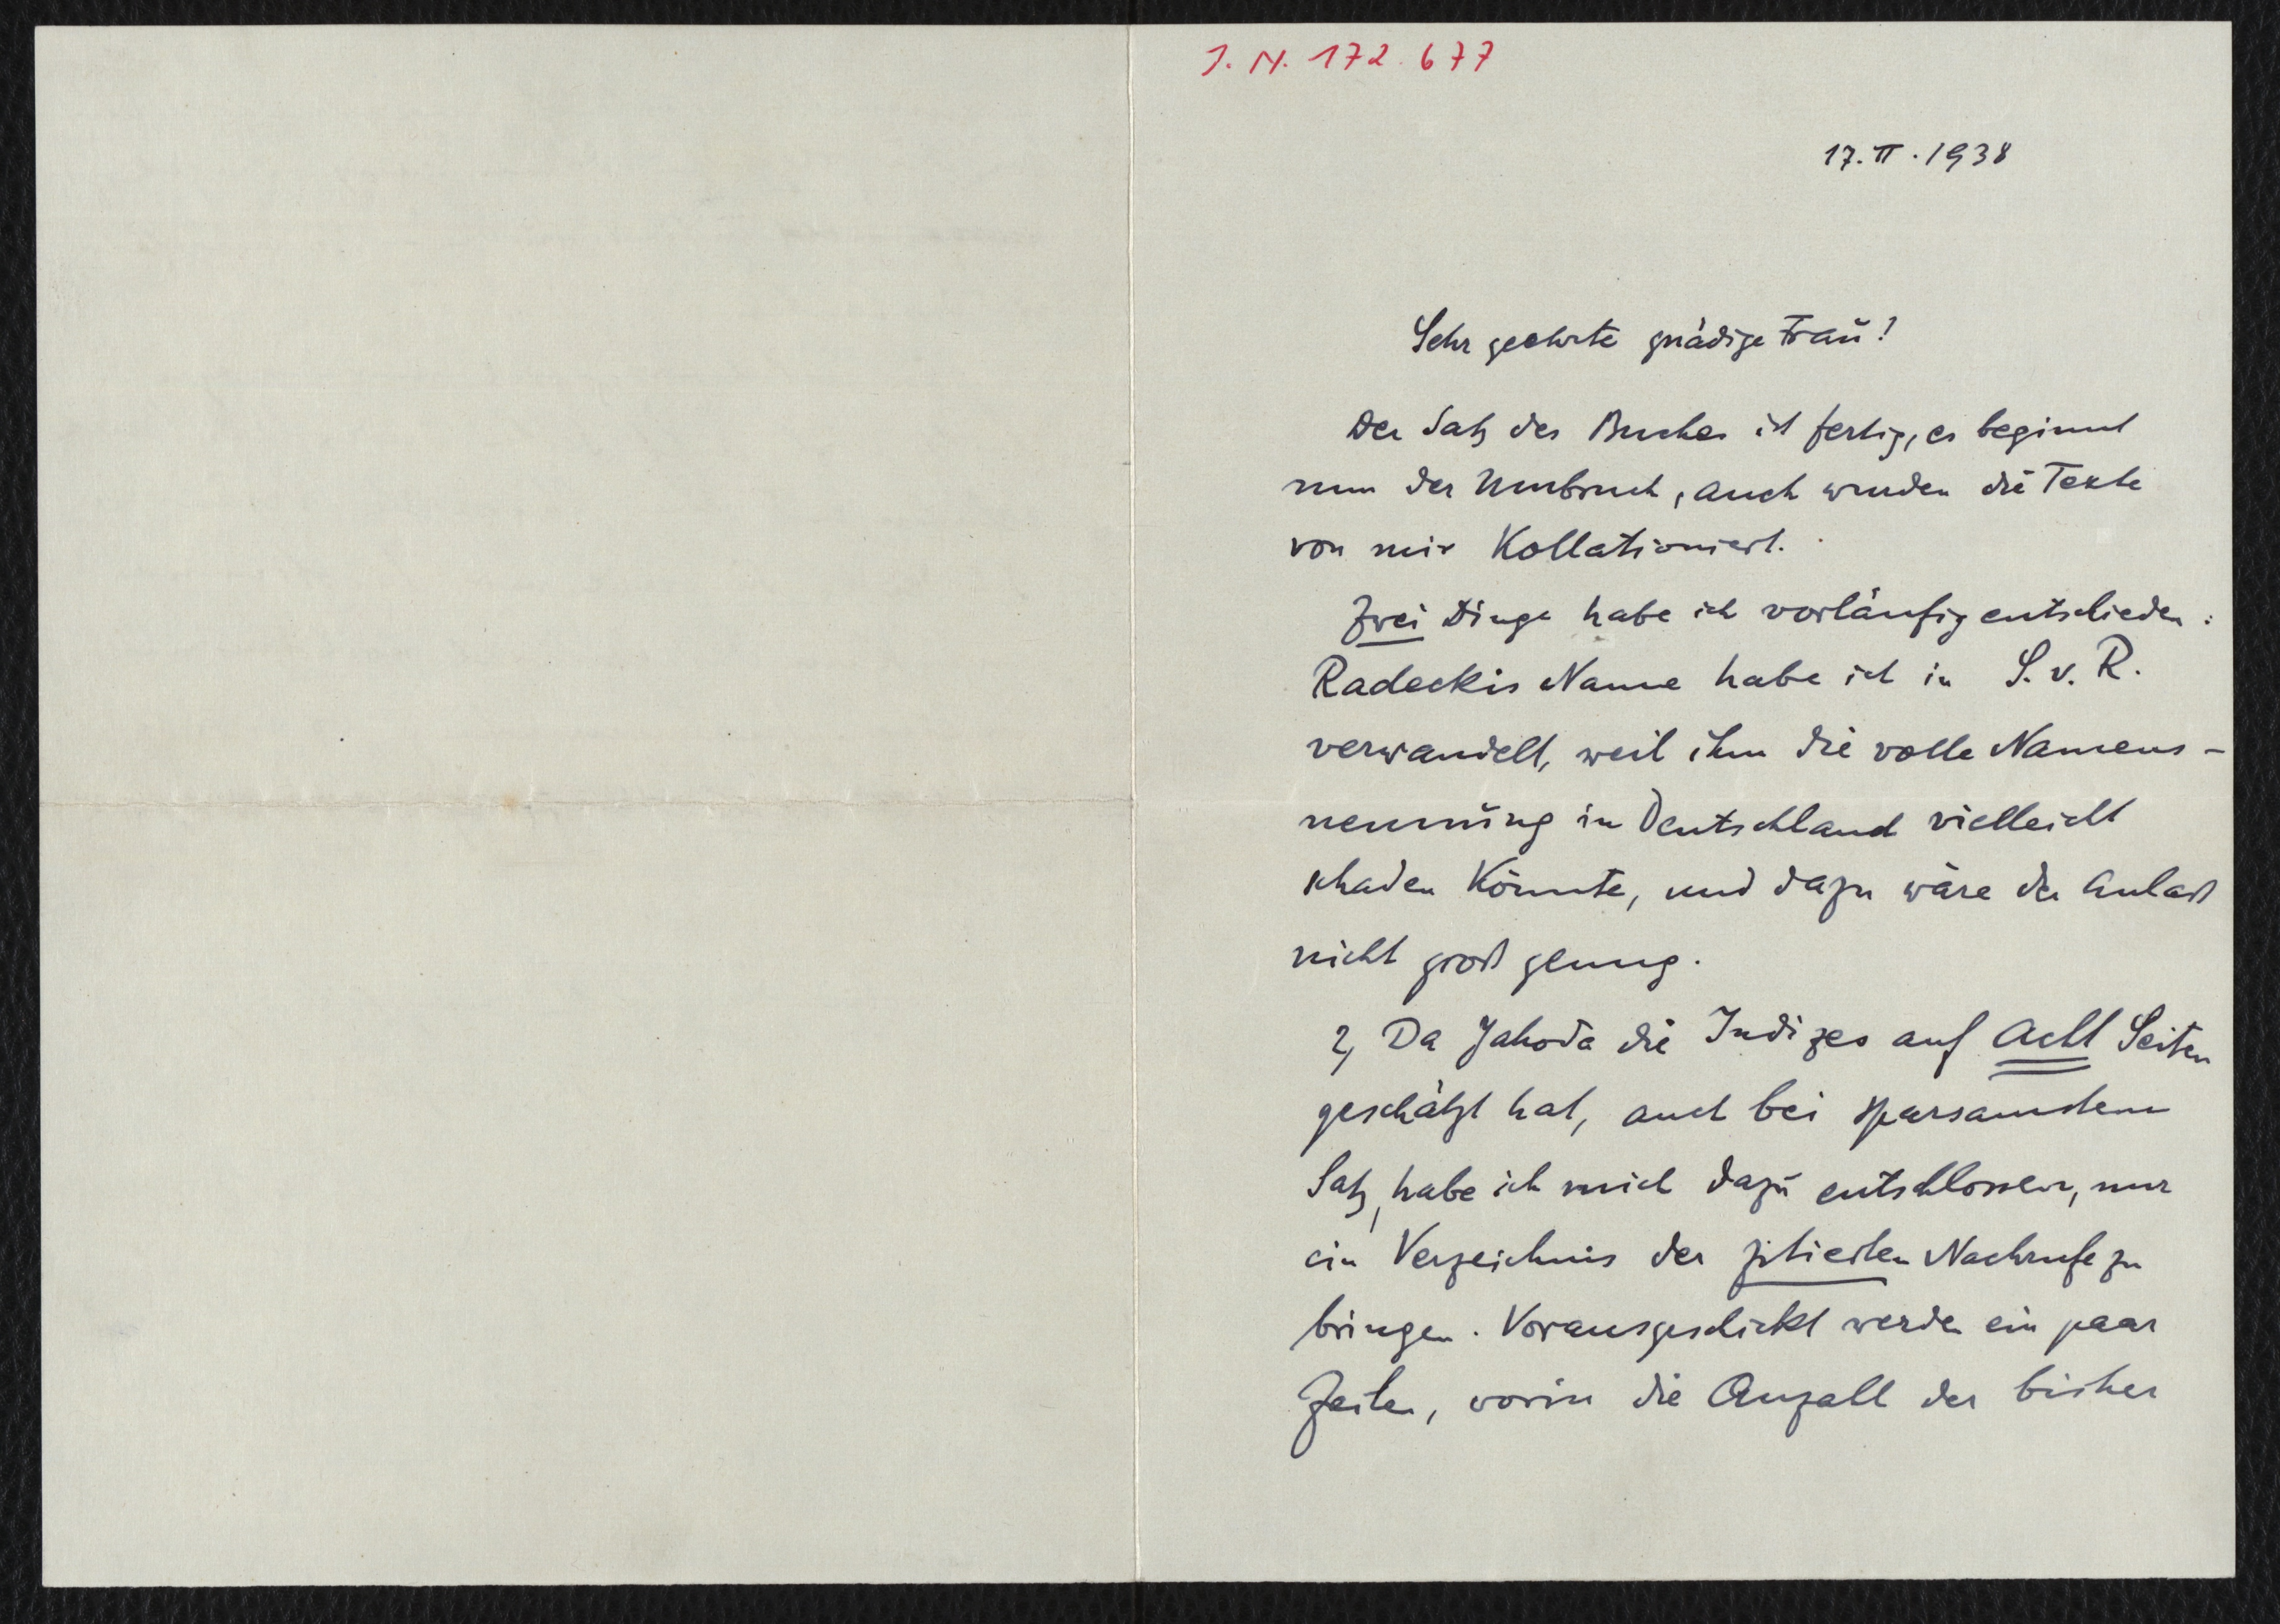 J. N. 172.677
17. II. 1938
Sehr geehrte gnädige Frau!
Der Satz des Buches ist fertig, es beginnt
nun der Umbruch, auch wurden die Texte
von mir Kollationiert.
Zwei Dinge habe ich vorläufig entschieden:
Radeckis Name habe ich in S. v. R.
verwandelt, weil ihm die volle Namens-
nennung in Deutschland vielleicht
schaden Könnte, und dazu wäre der Anlaß
nicht groß genug.
2, Da Jahoda die Indizes auf Acht Seiten
geschätzt hat, auch bei sparsamstem
Satz, habe ich mich dazu entschlossen, nur
ein Verzeichnis der zitierten Nachrufe zu
bringen. Vorausgeschickt werden ein paar
Zeilen, worin die Anzahl der bisher